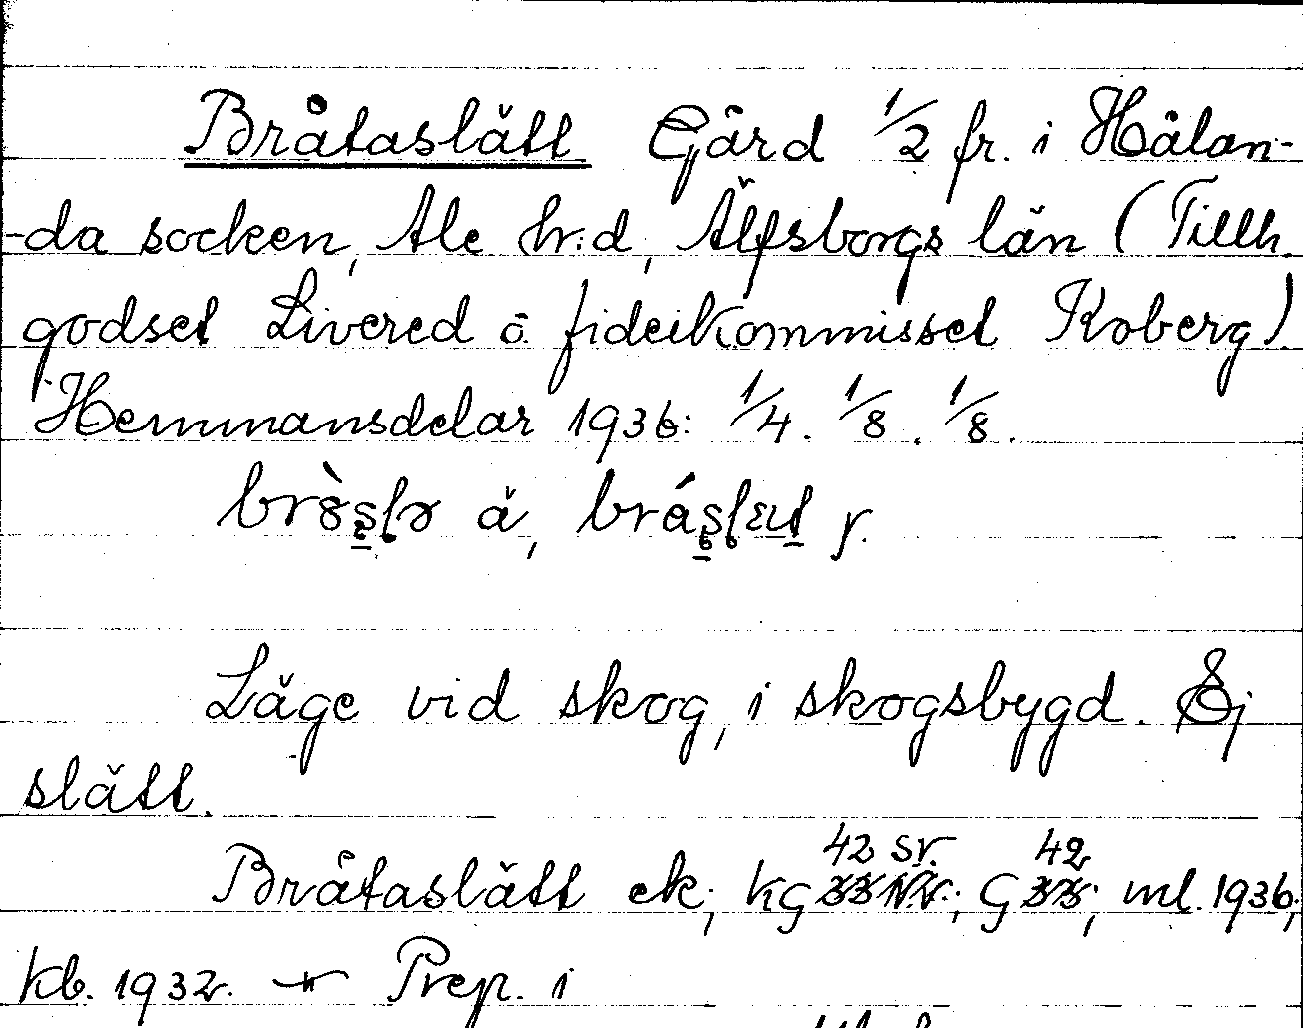 Bråtaslätt Gård 1/2 fr. i Hålan-
-da socken, Ale hr:d, Älfsborgs län (Tillh.
godset Livered o. fideikommisset Koberg).
Hemmansdelar 1936: 1/4. 1/8. 1/8.
å, y.
Läge vid skog, i skogsbygd. Ej
slätt.
42 sv. 42
Bråtaslätt ek; kG ; G ; ml. 1936;
kb. 1932. Prep. i